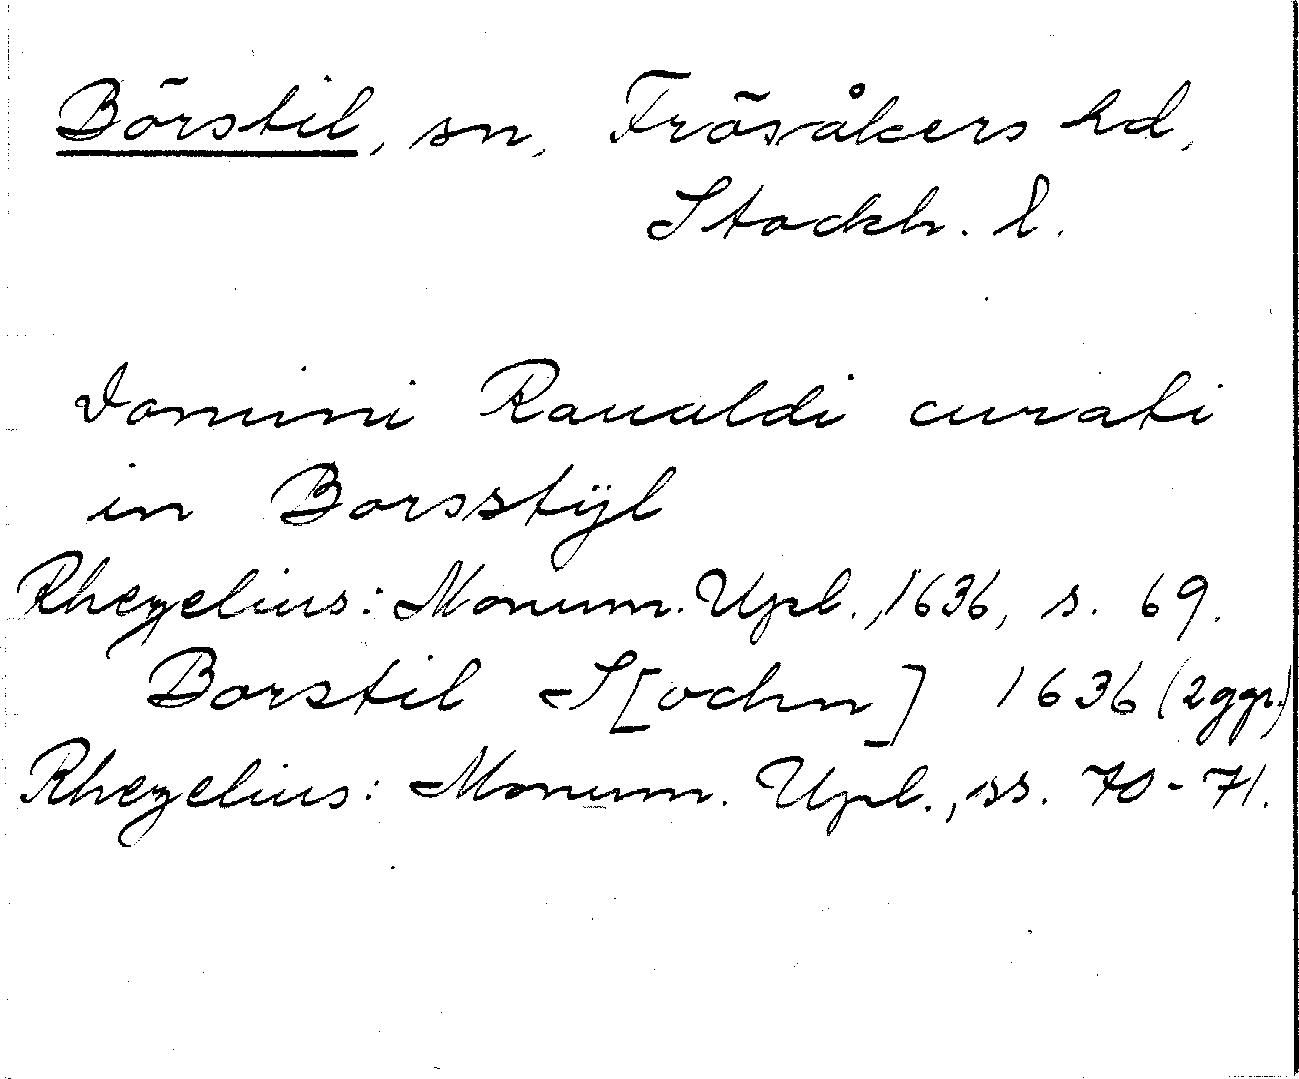 Börstil, sn, Frösåkers hd,
Stockh. l.
Domini Raualdi curati
in Borsstÿl
Rhezelius: Monum. Upl., 1636, s. 69.
Borstil S[ochn] 1636 (2ggr.)
Rhezelius: Monum. Upl., ss. 70-71.